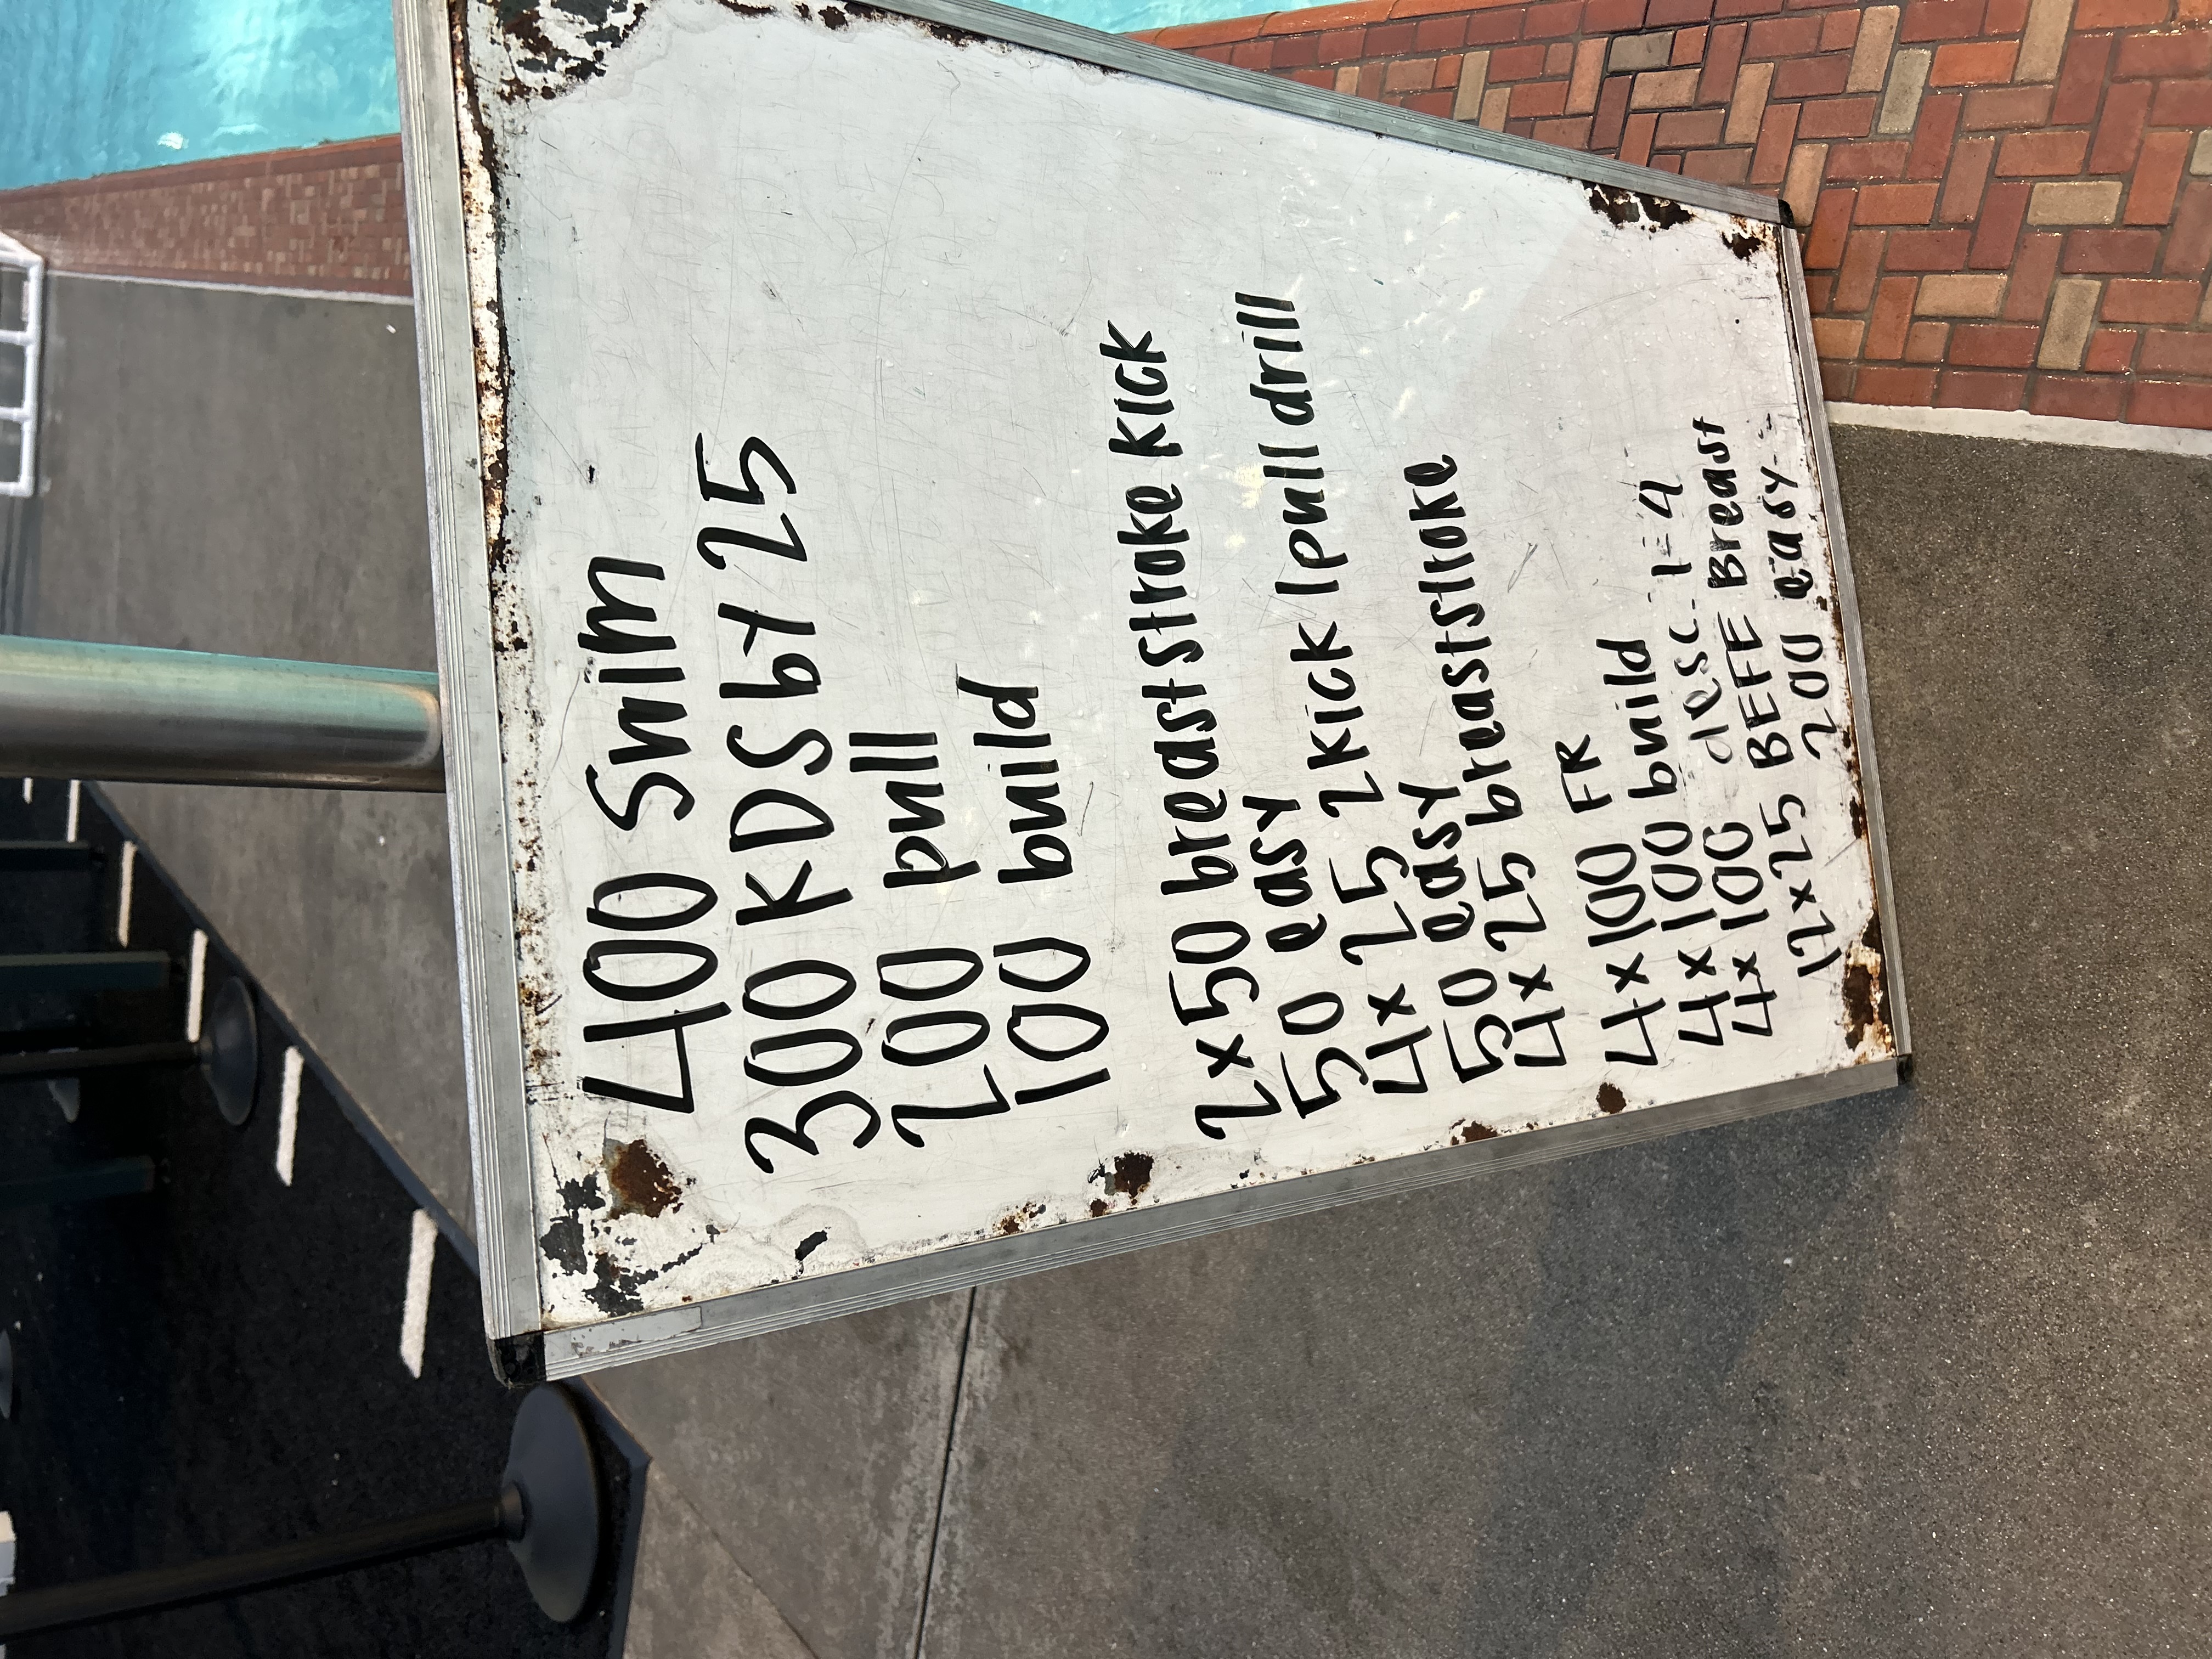 400 Swim
300 KDS by 25
200 pull
100 build
2x50 breaststroke kick
50 easy
4x25 2kick 1pull drill
50 easy
4x25 breaststroke
4x100 FR
4x100 build
4x100 desc 1-4
12x25 BEFE Breast
200 easy